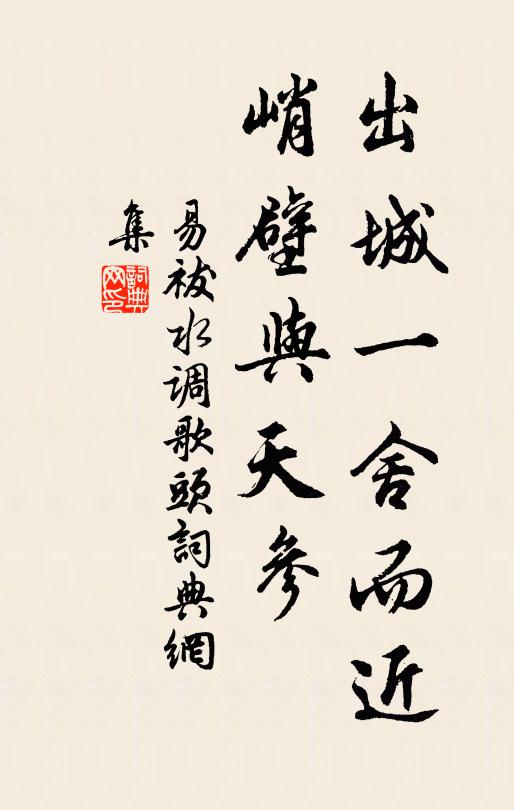 出城一舍而近
峭壁與天參
易祓水调歌頭詞典網
集
詞典網印